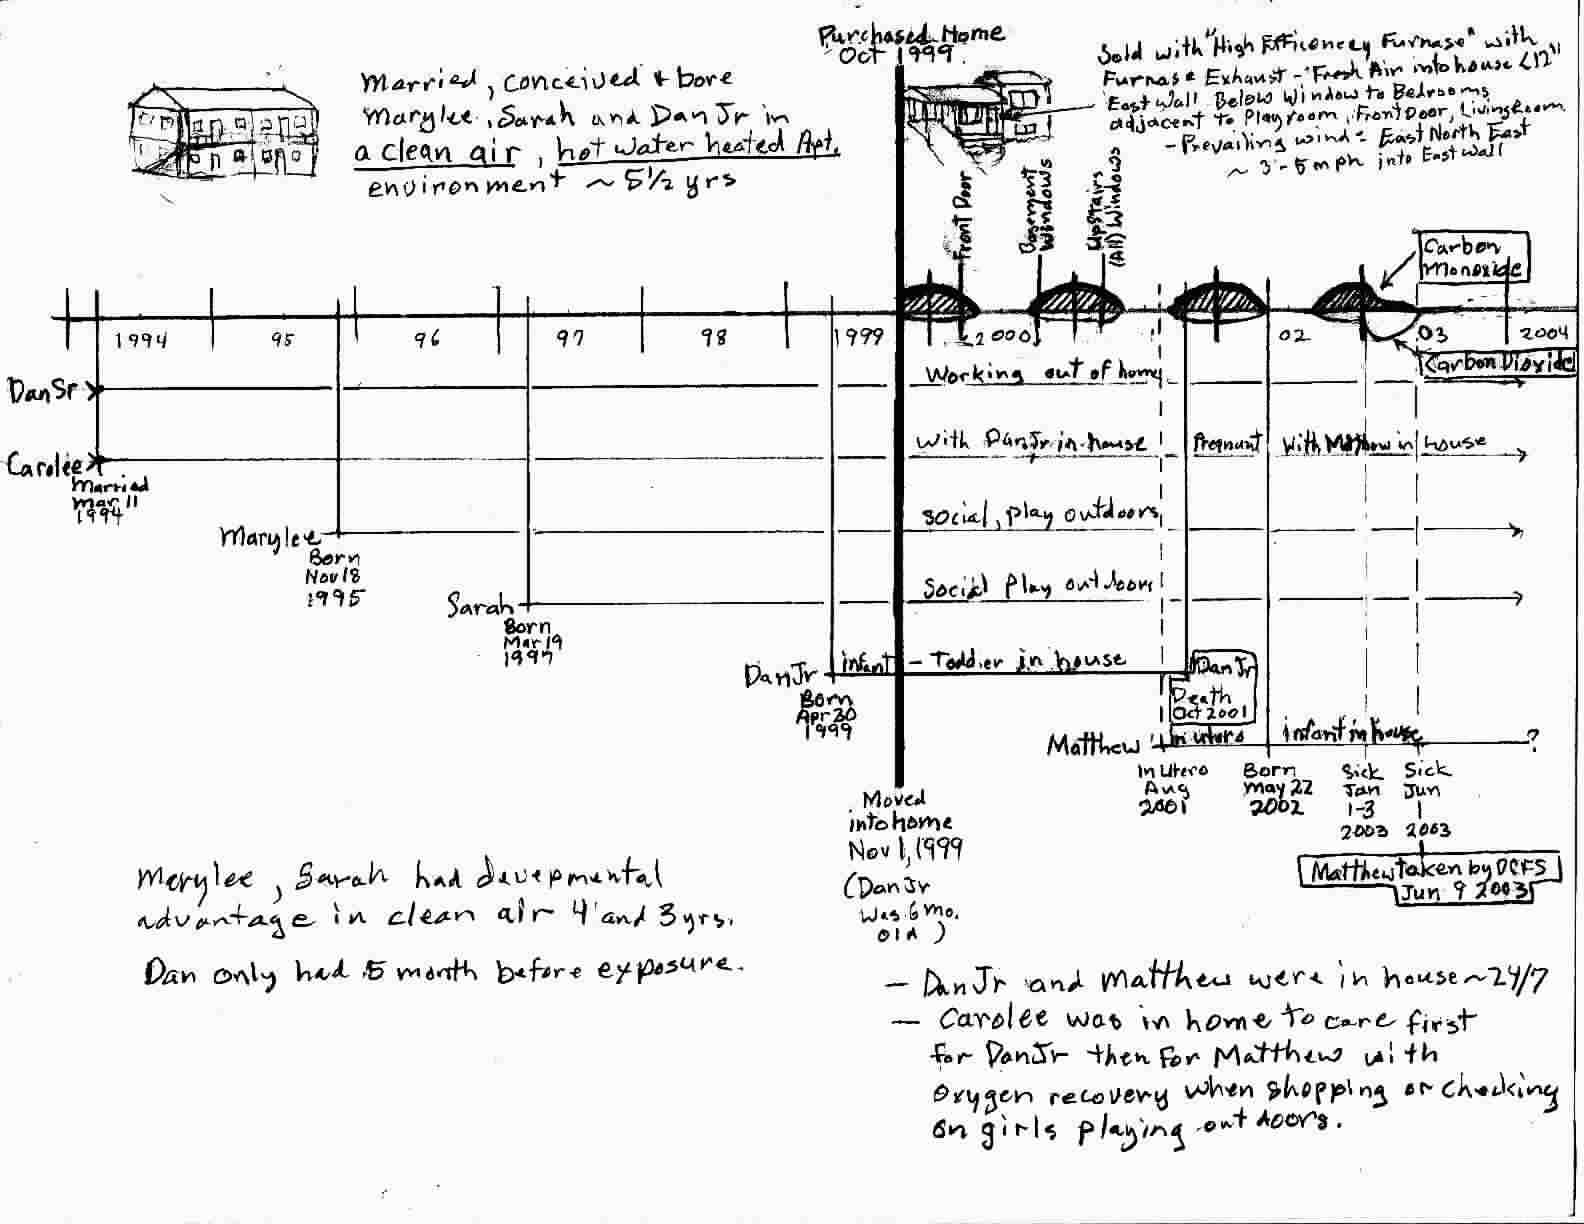 Purchased Home
Oct 1999
Married, conceived & bore
Marylee, Sarah and Dan Jr in
a clean air, hot water heated Apt.
environment ~ 5 1/2 yrs
Sold with "High Efficencey Furnase" with
Furnase Exhaust - "Fresh Air into house <12"
East Wall Below Window to Bedrooms
adjacent to Playroom, Front Door, Living Room
- Prevailing wind = East North East
~ 3-5 mph into East Wall
Front Door
Basement
Windows
Upstairs
(All) Windows
Carbon
Monoxide
1994 95 96 97 98 1999 2000 02 03 2004
Carbon Dioxide
Dan Sr
Working out of home
Carolee
With Dan Jr in house
Pregnant
With Matthew in house
Married
Mar 11
1994
Marylee
social, play outdoors
Born
Nov 18
1995
Sarah
Social Play outdoors
Born
Mar 19
1997
Dan Jr
infant - Toddler in house
Born
Apr 30
1999
Dan Jr
Death
Oct 2001
Matthew
in utero
infant in house
?
In Utero
Aug
2001
Born
May 22
2002
Sick
Jan
1-3
2003
Sick
Jun
1
2003
Matthew taken by DCFS
Jun 9 2003
Moved
into home
Nov 1, 1999
(Dan Jr
was 6 mo.
old)
Merylee, Sarah had devepmental
advantage in clean air 4 and 3 yrs.
Dan only had 5 month before exposure.
- Dan Jr and Matthew were in house ~ 24/7
- Carolee was in home to care first
for Dan Jr then for Matthew with
oxygen recovery when shopping or checking
on girls playing outdoors.